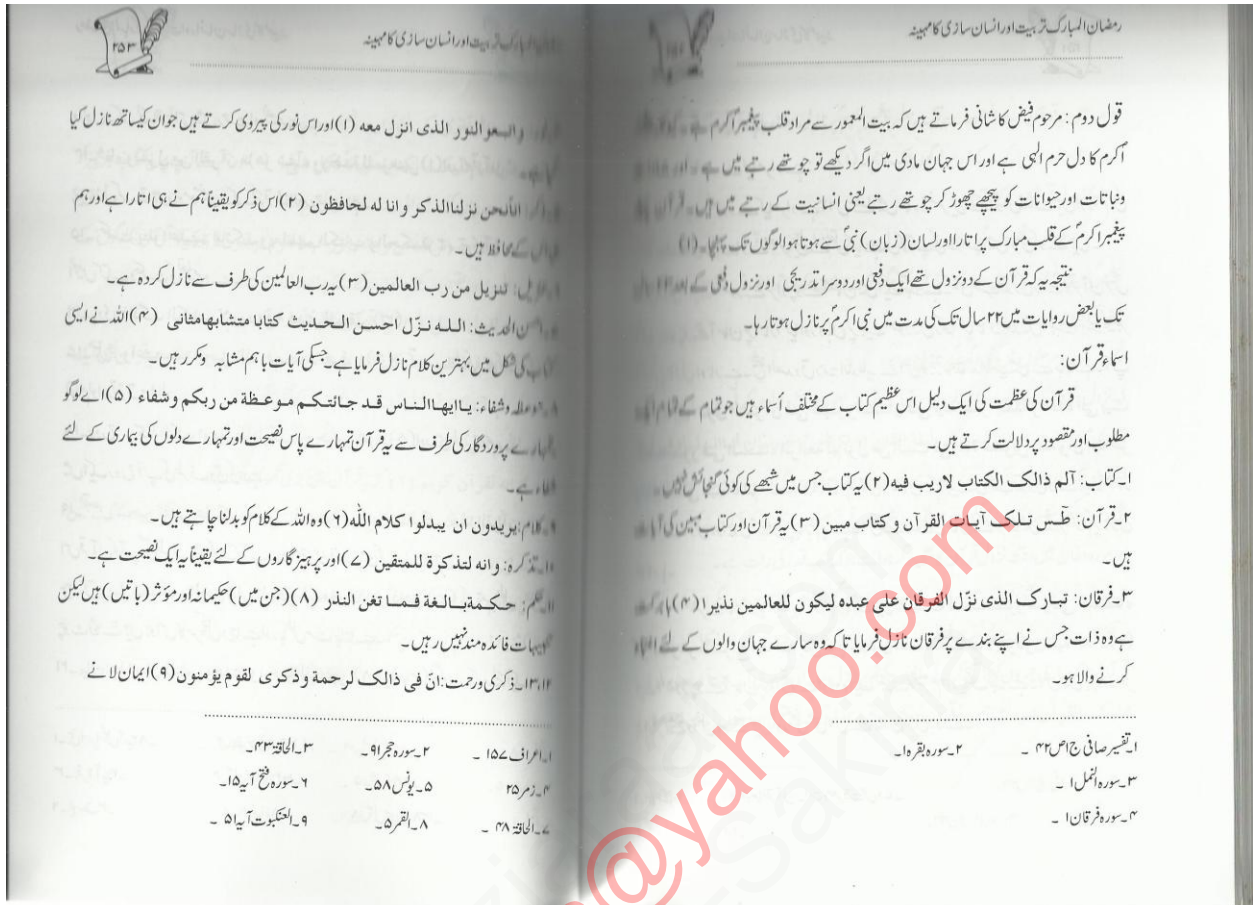 رمضان المبارک تربیت اور انسان سازی کا مہینہ
قول دوم: مرحوم فیض کاشانی فرماتے ہیں کہ بیت المعمور سے مراد قلب پیغمبر اکرمؐ ہے۔
اکرم کا دل حرم الہی ہے اور اس جہان مادی میں اگر دیکھے تو چوتھے رتبے میں ہے۔ اور
ونباتات اور حیوانات کو پیچھے چھوڑ کر چوتھے رتبے یعنی انسانیت کے رتبے میں ہیں۔ قرآن
پیغمبر اکرمؐ کے قلب مبارک پر اتارا اور لسان (زبان) نبیؐ سے ہوتا ہوا لوگوں تک پہنچا۔(۱)
نتیجہ یہ کہ قرآن کے دو نزول تھے ایک دفعی اور دوسرا تدریجی اور نزول دفعی کے بعد
تک یا بعض روایات میں ۲۲ سال تک کی مدت میں نبی اکرمؐ پر نازل ہوتا رہا۔
اسماء قرآن:
قرآن کی عظمت کی ایک دلیل اس عظیم کتاب کے مختلف أسماء ہیں جو تمام کے تمام
مطلوب اور مقصود پر دلالت کرتے ہیں۔
۱۔کتاب: آلم ذالک الکتاب لاریب فیہ(۲) یہ کتاب جس میں شبھے کی کوئی گنجائش نہیں۔
۲۔قرآن: طٓس تلک آیات القرآن و کتاب مبین (۳) یہ قرآن اور کتاب مبین کی آیات
ہیں۔
۳۔فرقان: تبارک الذی نزّل الفرقان علی عبدہ لیکون للعالمین نذیرا (۴)
ہے وہ ذات جس نے اپنے بندے پر فرقان نازل فرمایا تا کہ وہ سارے جہان والوں کے لئے
کرنے والا ہو۔
۱۔تفسیر صافی ج۱ص۴۲ ۔ ۲۔سورہ بقرہ۱۔
۳۔سورہ النمل۱ ۔
۴۔سورہ فرقان۱ ۔
المبارک تربیت اور انسان سازی کا مہینہ
۲۵۳
النور الذی انزل معه (۱) اور اس نور کی پیروی کرتے ہیں جو ان کیساتھ نازل کیا
نحن نزلنا الذکر و انا له لحافظون (۲) اس ذکر کو یقیناً ہم نے ہی اتارا ہے اور ہم
اس کے محافظ ہیں۔
تنزیل من رب العالمین (۳) یہ رب العالمین کی طرف سے نازل کردہ ہے۔
احسن الحدیث: اللہ نزّل احسن الحدیث کتابا متشابھا مثانی (۴) اللہ نے ایسی
کتاب کی شکل میں بہترین کلام نازل فرمایا ہے۔ جسکی آیات باہم مشابہ و مکرر ہیں۔
وشفاء: یا ایھا الناس قد جائتکم موعظة من ربکم وشفاء (۵) اے لوگو
تمہارے پروردگار کی طرف سے یہ قرآن تمہارے پاس نصیحت اور تمہارے دلوں کی بیماری کے لئے
شفاء ہے۔
کلام: یریدون ان یبدلوا کلام اللّٰہ(۶) وہ اللہ کے کلام کو بدلنا چاہتے ہیں۔
تذکرہ: وانہ لتذکرة للمتقین (۷) اور پرہیزگاروں کے لئے یقیناً یہ ایک نصیحت ہے۔
حکمة بالغة فما تغن النذر (۸) (جن میں) حکیمانہ اور مؤثر (باتیں) ہیں لیکن
تنبیہات فائدہ مند نہیں رہیں۔
۱۳،۱۲۔ذکریٰ ورحمت: انّ فی ذالک لرحمة وذکری لقوم یؤمنون(۹) ایمان لانے
۱۔اعراف ۱۵۷ ۔ ۲۔سورہ حجر۹۱۔ ۳۔الحاقۃ ۴۳۔
۴۔زمر۲۵ ۵۔یونس ۵۸۔ ۶۔سورہ فتح آیہ ۱۵۔
۷۔الحاقۃ ۴۸ ۔ ۸۔القمر۵۔ ۹۔العنکبوت آیہ ۵۱ ۔
@yahoo.com